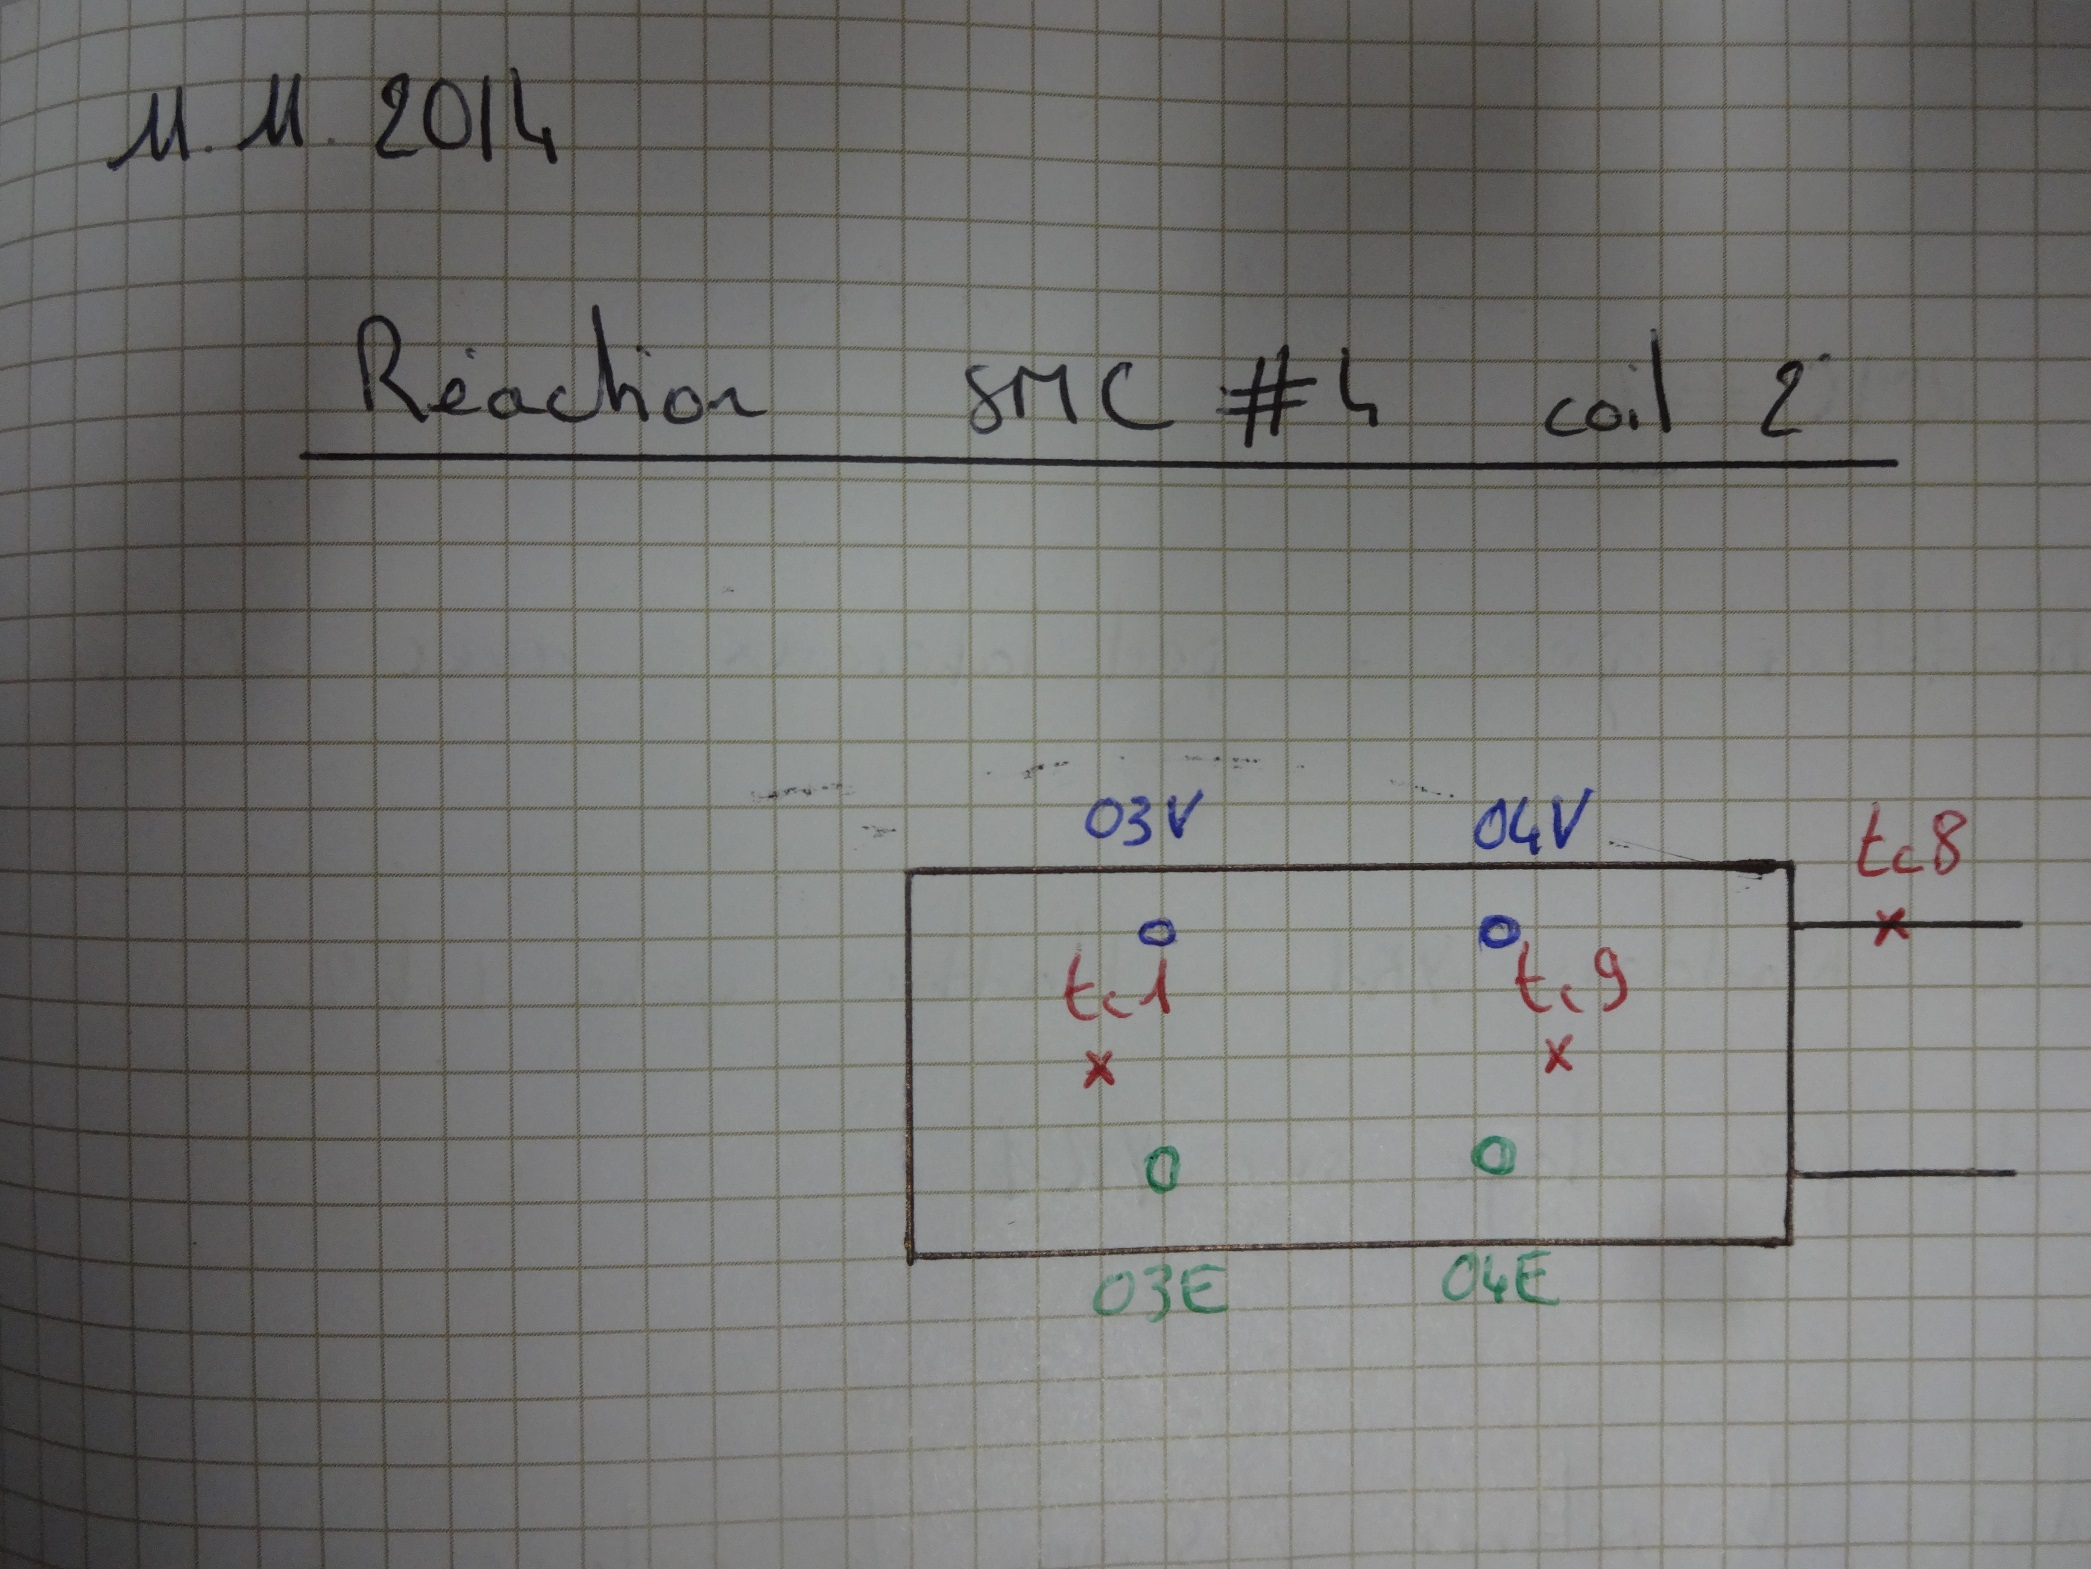 11.11.2014
Réaction SMC #4 coil 2
03V 04V
tc8
tc1 tc9
03E 04E